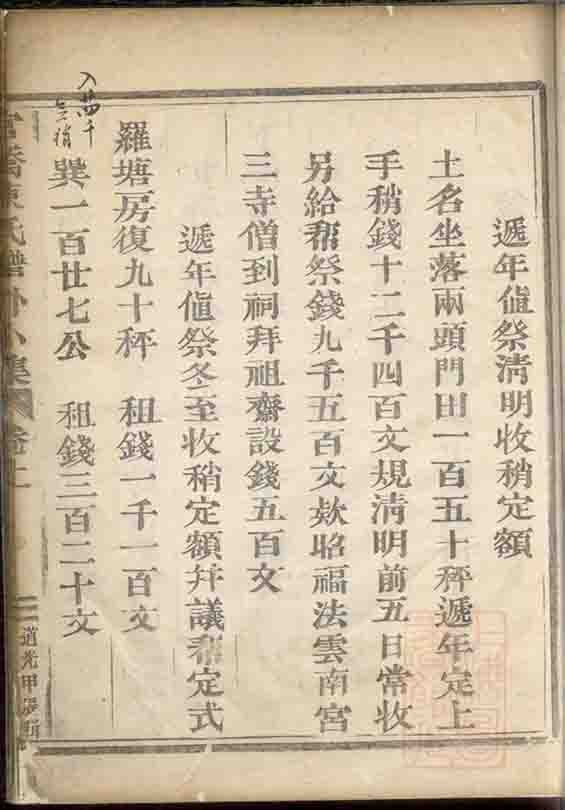 遞年值祭清明收稍定額
土名坐落兩頭門田一百五十秤遞年定上
手稍錢十二千四百文規清明前五日常收
另給帮祭錢九千五百文欵昭福法雲南宮
三寺僧到祠拜祖齋設錢五百文
遞年值祭冬至收稍定額并議帮定式
羅塘房復九十秤 租錢一千一百文
巽一百廿七公 租錢三百二十文
入
千
道光甲